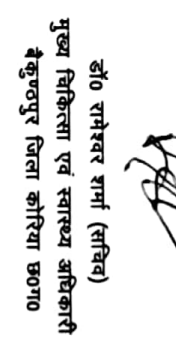 डॉ० रामेश्वर शर्मा (सचिव)
मुख्य चिकित्सा एवं स्वास्थ्य अधिकारी
बैकुण्ठपुर जिला कोरिया छ०ग०